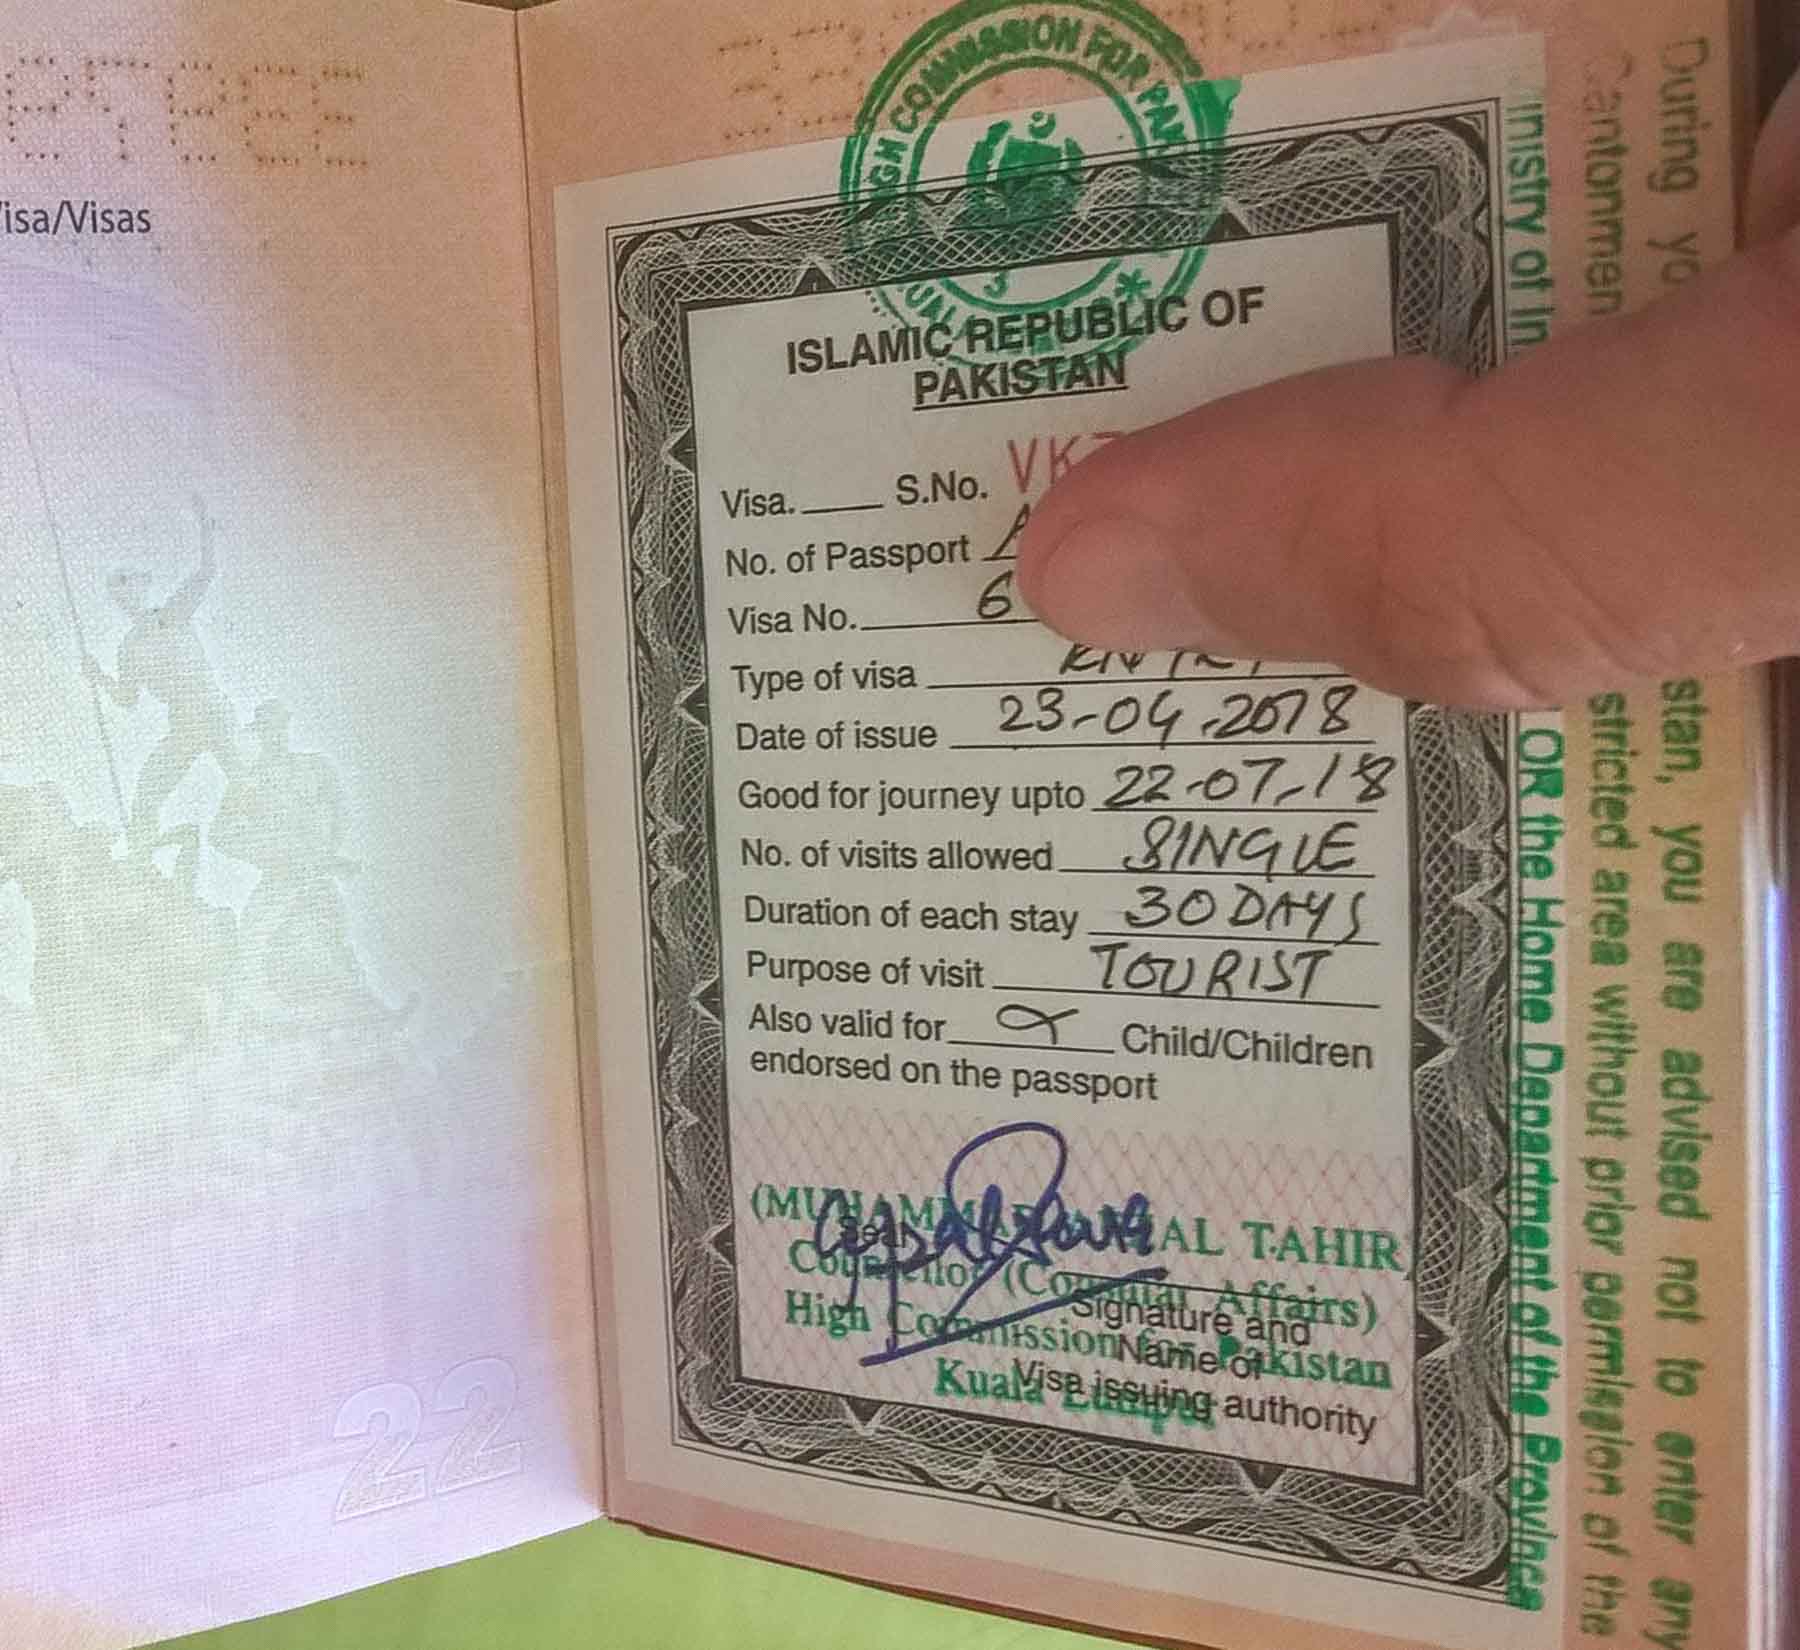 Visa/Visas
22
ISLAMIC REPUBLIC OF
PAKISTAN
Visa. S.No. VK
No. of Passport A
Visa No. 6
Type of visa ENTRY
Date of issue 23-04-2018
Good for journey upto 22-07-18
No. of visits allowed SINGLE
Duration of each stay 30 DAYS
Purpose of visit TOURIST
Also valid for Child/Children
endorsed on the passport
Seal
TAHIR
Counsellor (Consular Affairs)
High Commission for Pakistan
Kuala Lumpur
Signature and
Name of
Visa issuing authority
HIGH COMMISSION FOR PAK
During yo stan, you are advised not to enter any
Cantonmen stricted area without prior permission of the
inistry of In OR the Home Department of the Province